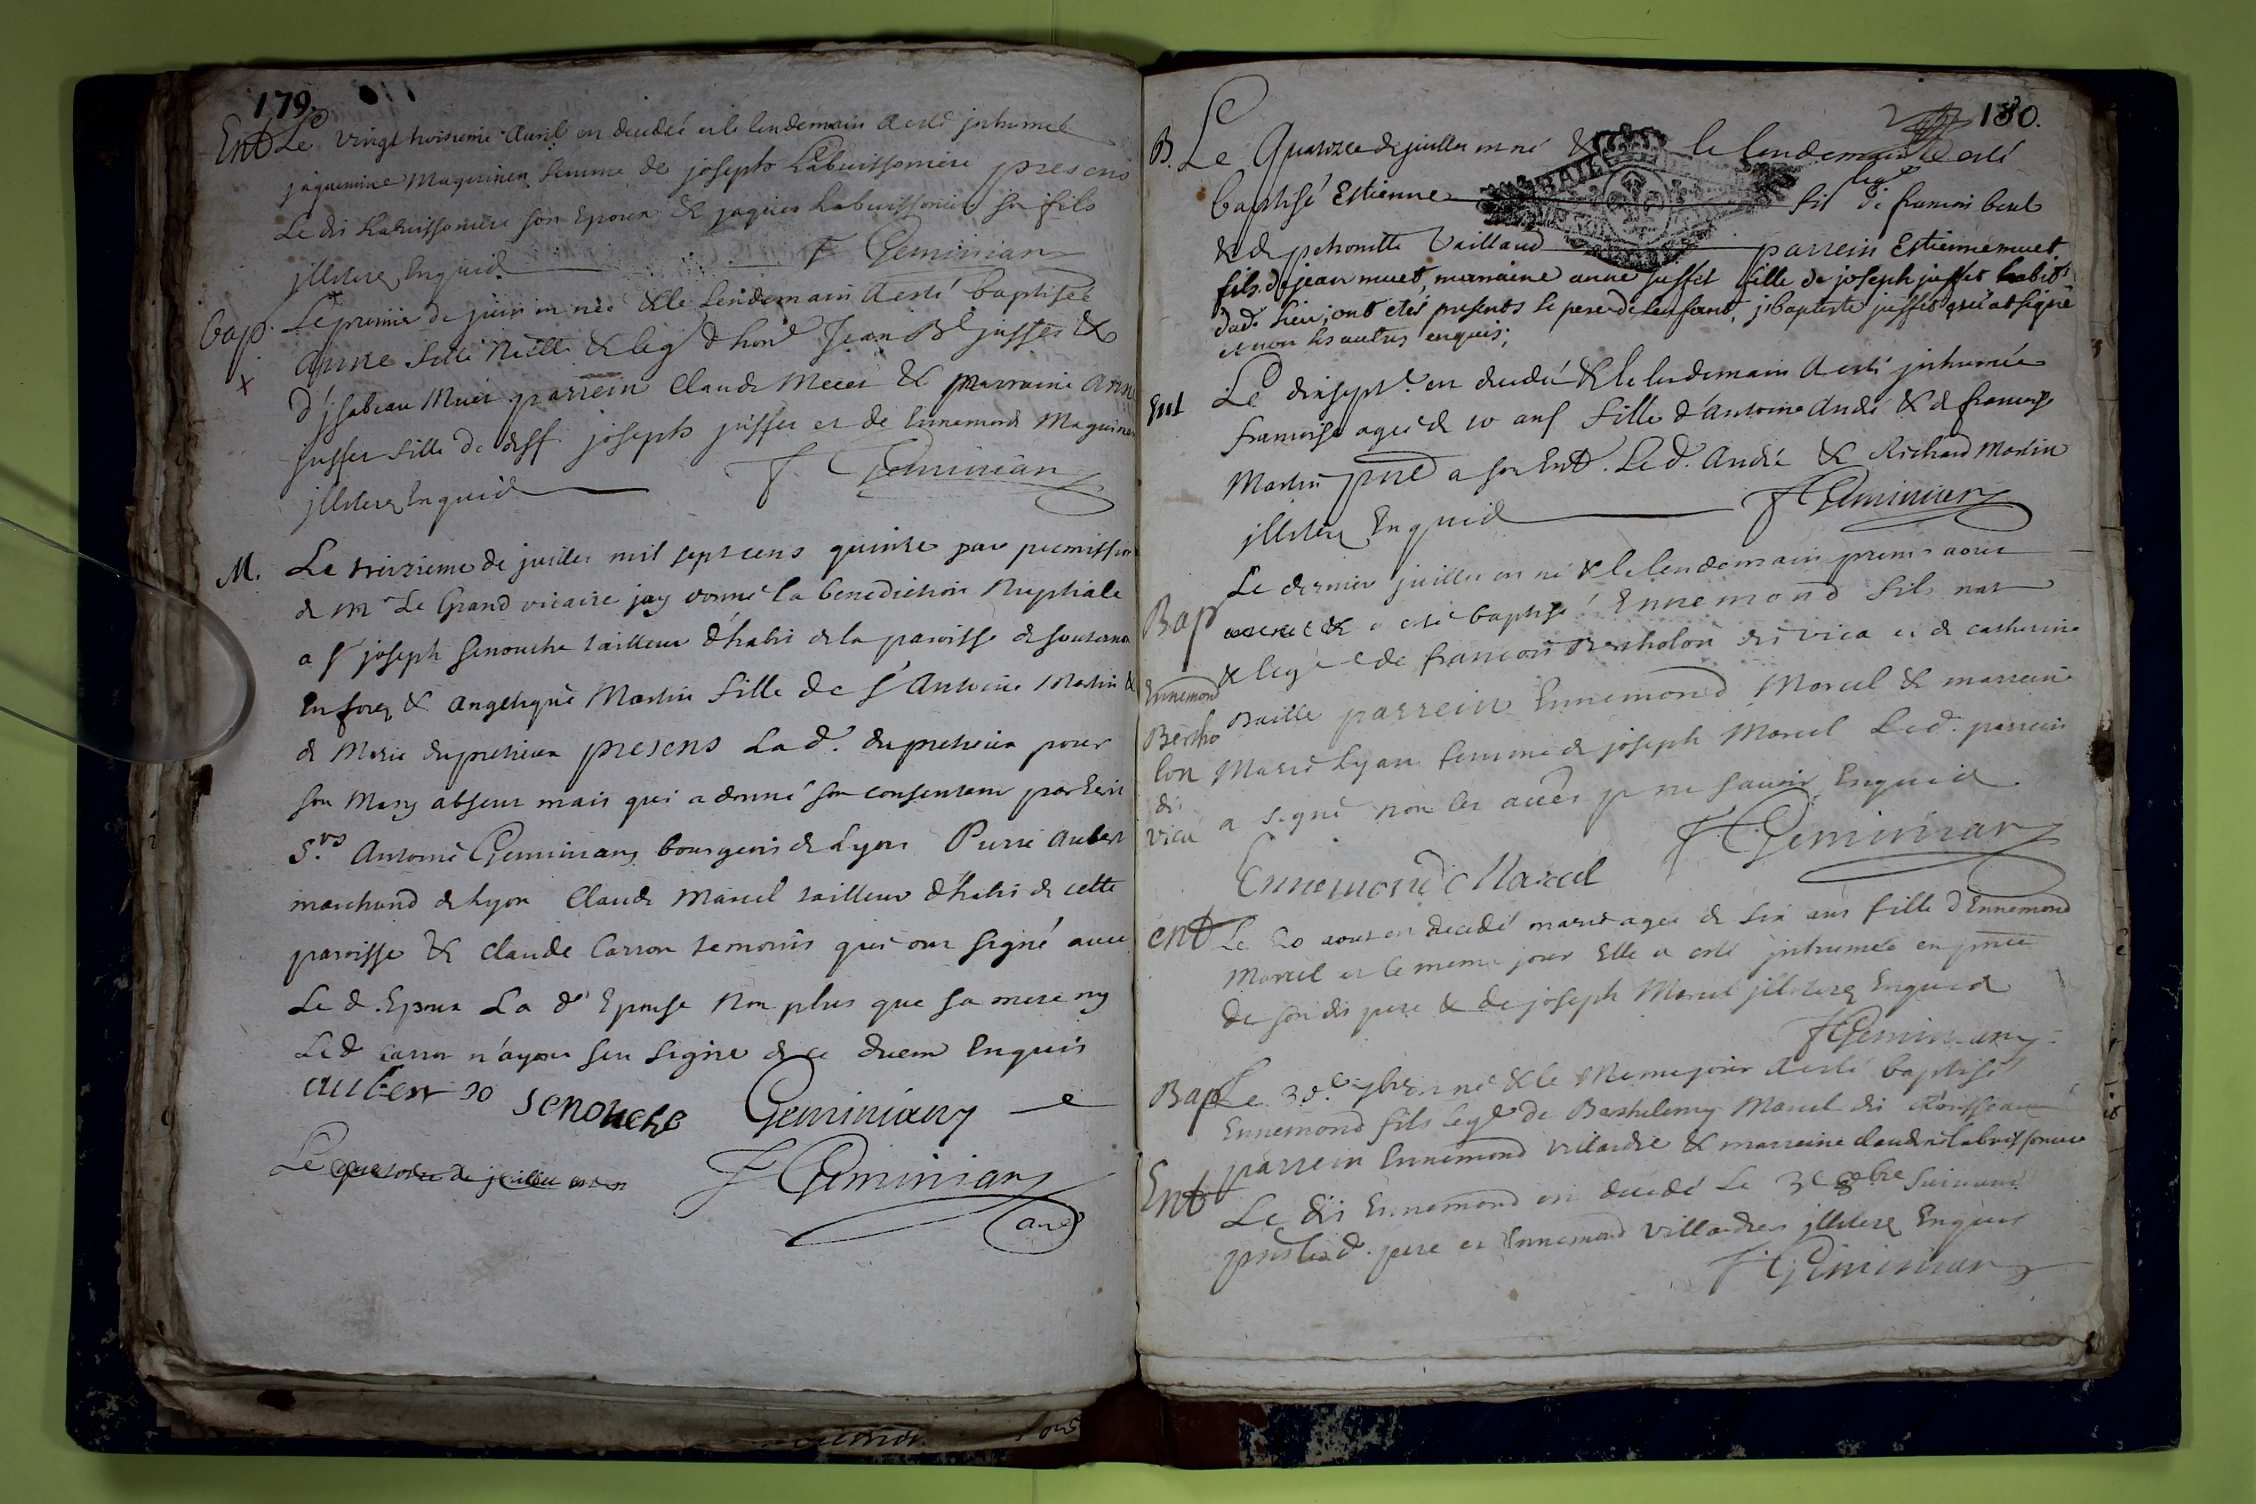 179.
Ent Le vingt troisieme Avril est decedée et le lendemain a esté inhumée
jaquemine Maguinen femme de joseph Labuissonniere presens
Le dit Labuissonniere son Epoux & jaques Labuissonniere son fils
jlliterez Enquis F Geminian
bap. Le premier de juin est née & le lendemain a esté baptisée
x Anne fille nelle & leg de hone Jean Bt jusset &
d'jsabeau Muet parrein Claude Meet & marraine Anne
jusset fille de deff joseph jusset et de Ennemonde Maguinen
jlliterez Enquis F Geminian
M. Le treizieme de juillet mil sept cens quinze par permission
de Mr Le Grand vicaire jay donné la benediction Nuptiale
a Sr joseph Senouche tailleur d'habit de la paroisse de
En forez & Angelique Martin fille de Sr Antoine Martin &
de Marie dupretieux presens La de. dupretieux pour
son Mary absent mais qui a donné son consentemt par Ecrit
Srs Antoine Geminiany bourgeois de Lyon Pierre Aubert
marchand de Lyon Claude Marcel tailleur d'habit de cette
paroisse & Claude Carron temoins qui ont signé avec
Le d. Epoux La de Epouse Non plus que sa mere ny
Le d Carron n'ayant seu signer de ce duem Enquis
Aubert Senouche Geminiany
Le quatorze de juillet est n
F Geminiany
curé
180.
B. Le Quatorze de juillet est né & le lendemain a esté
baptisé Estienne fils leg. de francois beul
& de petronille Vaillaud parrein Estienne muet
fils de jean muet, marraine anne jusset fille de joseph jusset habitt
dud. Lieu, ont etés presents le pere de lenfant, j: baptiste jusset qui at signé
et non les autres enquis;
Ent Le dixsept. est decedé & le lendemain a esté jnhumée
francoise agée de 10 ans fille d'Antoine André & de francoise
Martin pnt a son Entt. Le d. André & Richard Martin
jlliterez Enquis F Geminiany
Bap Le dernier juillet est né & le lendemain premier aoust
a esté baptisé Ennemond fils nat
& leg. de francois Bertholon dit vica et de catherine
Ennemond Baille parrein Ennemond Marcel & marreine
Bertho Marie Lyan femme de joseph Marcel Led. parrein
lon a signé non les autres pr ne savoir Enquis
dit
vica
Ennemond Marcel F Geminiany
ent Le 20 aoust est decedé marie agée de six ans fille d'Ennemond
Marcel et le meme jour Elle a esté jnhumée en pnce
de son dit pere & de joseph Marcel jlliterez Enquis
F Geminiany
Bap Le 3e. 7bre est né & le Meme jour a esté baptisé
Ennemond fils leg. de Barthelemy Marcel dit
parrein Ennemond villardre & marreine claudine labuissonniere
Ent Le dit Ennemond est decedé Le 3e 8bre suivant
pnts led. pere et Ennemond Villardres jlliterez Enquis
F Geminiany